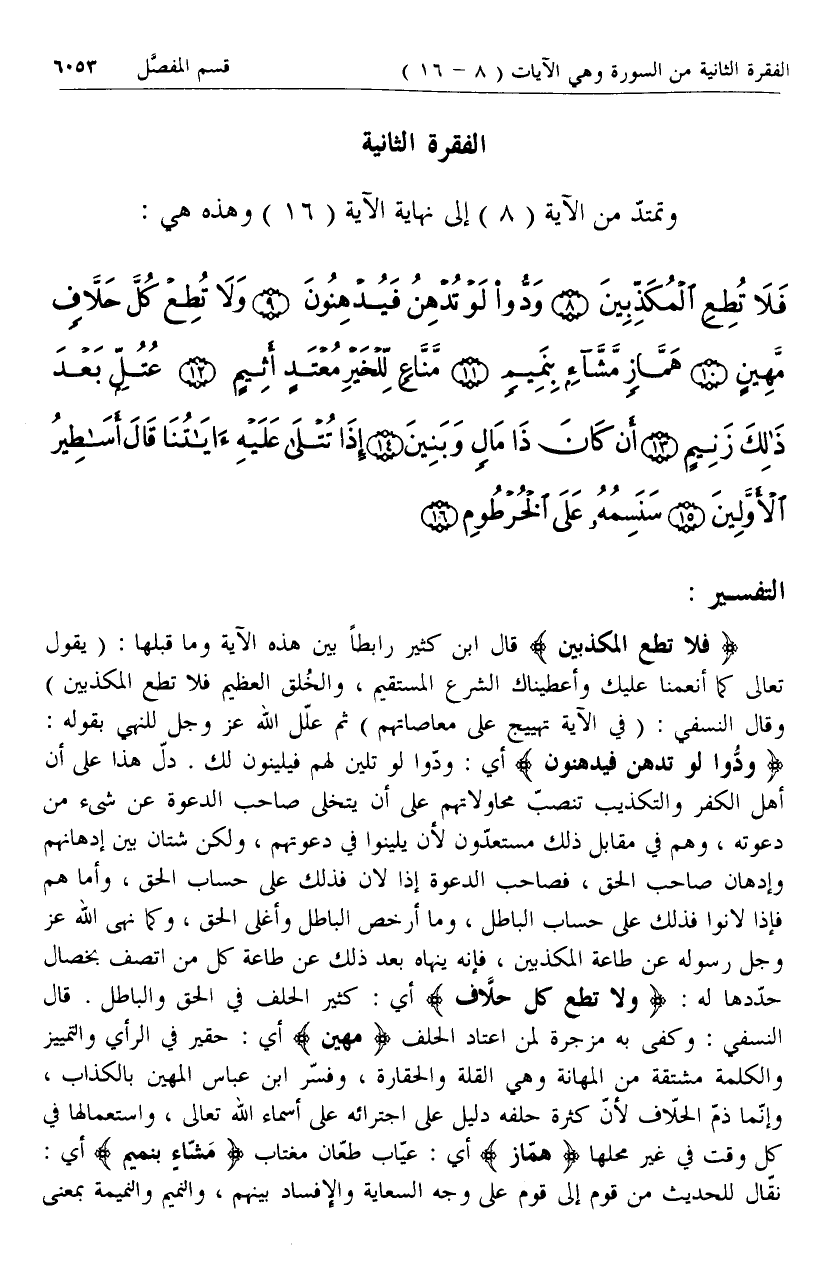 الفقرة الثانية من السورة وهي الآيات ( ٨ – ١٦ ) قسم المفصَّل ٦٠٥٣
الفقرة الثانية
وتمتدّ من الآية ( ٨ ) إلى نهاية الآية ( ١٦ ) وهذه هي :
فَلَا تُطِعِ ٱلْمُكَذِّبِينَ ۝٨ وَدُّوا۟ لَوْ تُدْهِنُ فَيُدْهِنُونَ ۝٩ وَلَا تُطِعْ كُلَّ حَلَّافٍ
مَّهِينٍ ۝١٠ هَمَّازٍ مَّشَّآءٍ بِنَمِيمٍ ۝١١ مَّنَّاعٍ لِّلْخَيْرِ مُعْتَدٍ أَثِيمٍ ۝١٢ عُتُلٍّ بَعْدَ
ذَٰلِكَ زَنِيمٍ ۝١٣ أَن كَانَ ذَا مَالٍ وَبَنِينَ ۝١٤ إِذَا تُتْلَىٰ عَلَيْهِ ءَايَٰتُنَا قَالَ أَسَٰطِيرُ
ٱلْأَوَّلِينَ ۝١٥ سَنَسِمُهُۥ عَلَى ٱلْخُرْطُومِ ۝١٦
التفسير :
﴿ فلا تطع المكذبين ﴾ قال ابن كثير رابطاً بين هذه الآية وما قبلها : ( يقول
تعالى كما أنعمنا عليك وأعطيناك الشرع المستقيم ، والخُلق العظيم فلا تطع المكذبين )
وقال النسفي : ( في الآية تهييج على معاصاتهم ) ثم علّل الله عز وجل للنهي بقوله :
﴿ ودُّوا لو تدهن فيدهنون ﴾ أي : ودّوا لو تلين لهم فيلينون لك . دلّ هذا على أن
أهل الكفر والتكذيب تنصبّ محاولاتهم على أن يتخلى صاحب الدعوة عن شىء من
دعوته ، وهم في مقابل ذلك مستعدّون لأن يلينوا في دعوتهم ، ولكن شتان بين إدهانهم
وإدهان صاحب الحق ، فصاحب الدعوة إذا لان فذلك على حساب الحق ، وأما هم
فإذا لانوا فذلك على حساب الباطل ، وما أرخص الباطل وأغلى الحق ، وكما نهى الله عز
وجل رسوله عن طاعة المكذبين ، فإنه ينهاه بعد ذلك عن طاعة كل من اتصف بخصال
حدّدها له : ﴿ ولا تطع كل حلَّاف ﴾ أي : كثير الحلف في الحق والباطل . قال
النسفي : وكفى به مزجرة لمن اعتاد الحلف ﴿ مهين ﴾ أي : حقير في الرأي والتمييز
والكلمة مشتقة من المهانة وهي القلة والحقارة ، وفسّر ابن عباس المهين بالكذاب ،
وإنّما ذمّ الحلّاف لأنّ كثرة حلفه دليل على اجترائه على أسماء الله تعالى ، واستعمالها في
كل وقت في غير محلها ﴿ همّاز ﴾ أي : عيّاب طعّان مغتاب ﴿ مَشّاءٍ بنميم ﴾ أي :
نقّال للحديث من قوم إلى قوم على وجه السعاية والإفساد بينهم ، والنميم والنميمة بمعنى